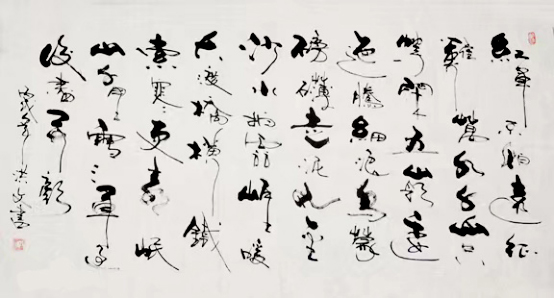 紅軍不怕遠征
難萬水千山只
等閒五嶺逶
迤騰細浪烏蒙
磅礴走泥丸金
沙水拍雲崖暖
大渡橋橫鐵
索寒更喜岷
山千里雪三軍過
後盡開顏
丙戌年